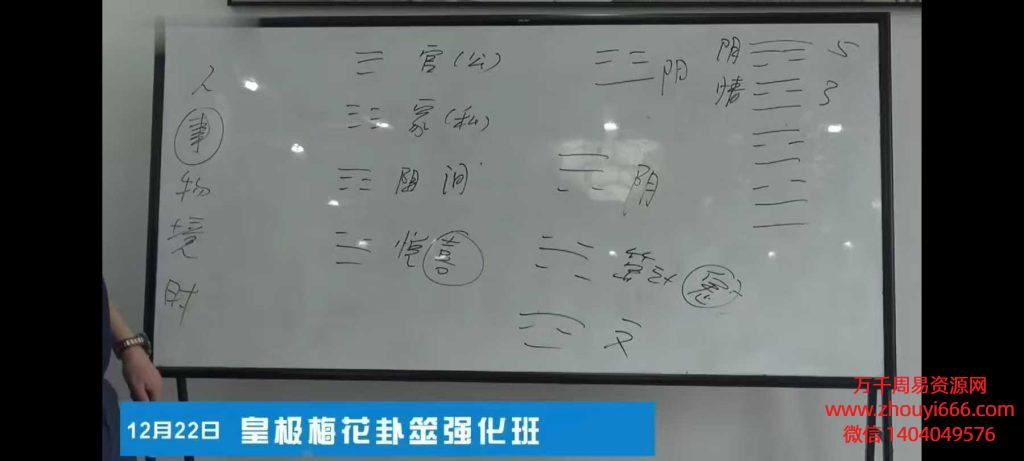 人
事
物
境
时
☰ 官（公）
☷ 家（私）
阴间
悦 喜
阴
阴
文
阴 5
情 3
12月22日 皇极梅花卦签强化班
万千周易资源网
www.zhouyi666.com
微信 1404049576